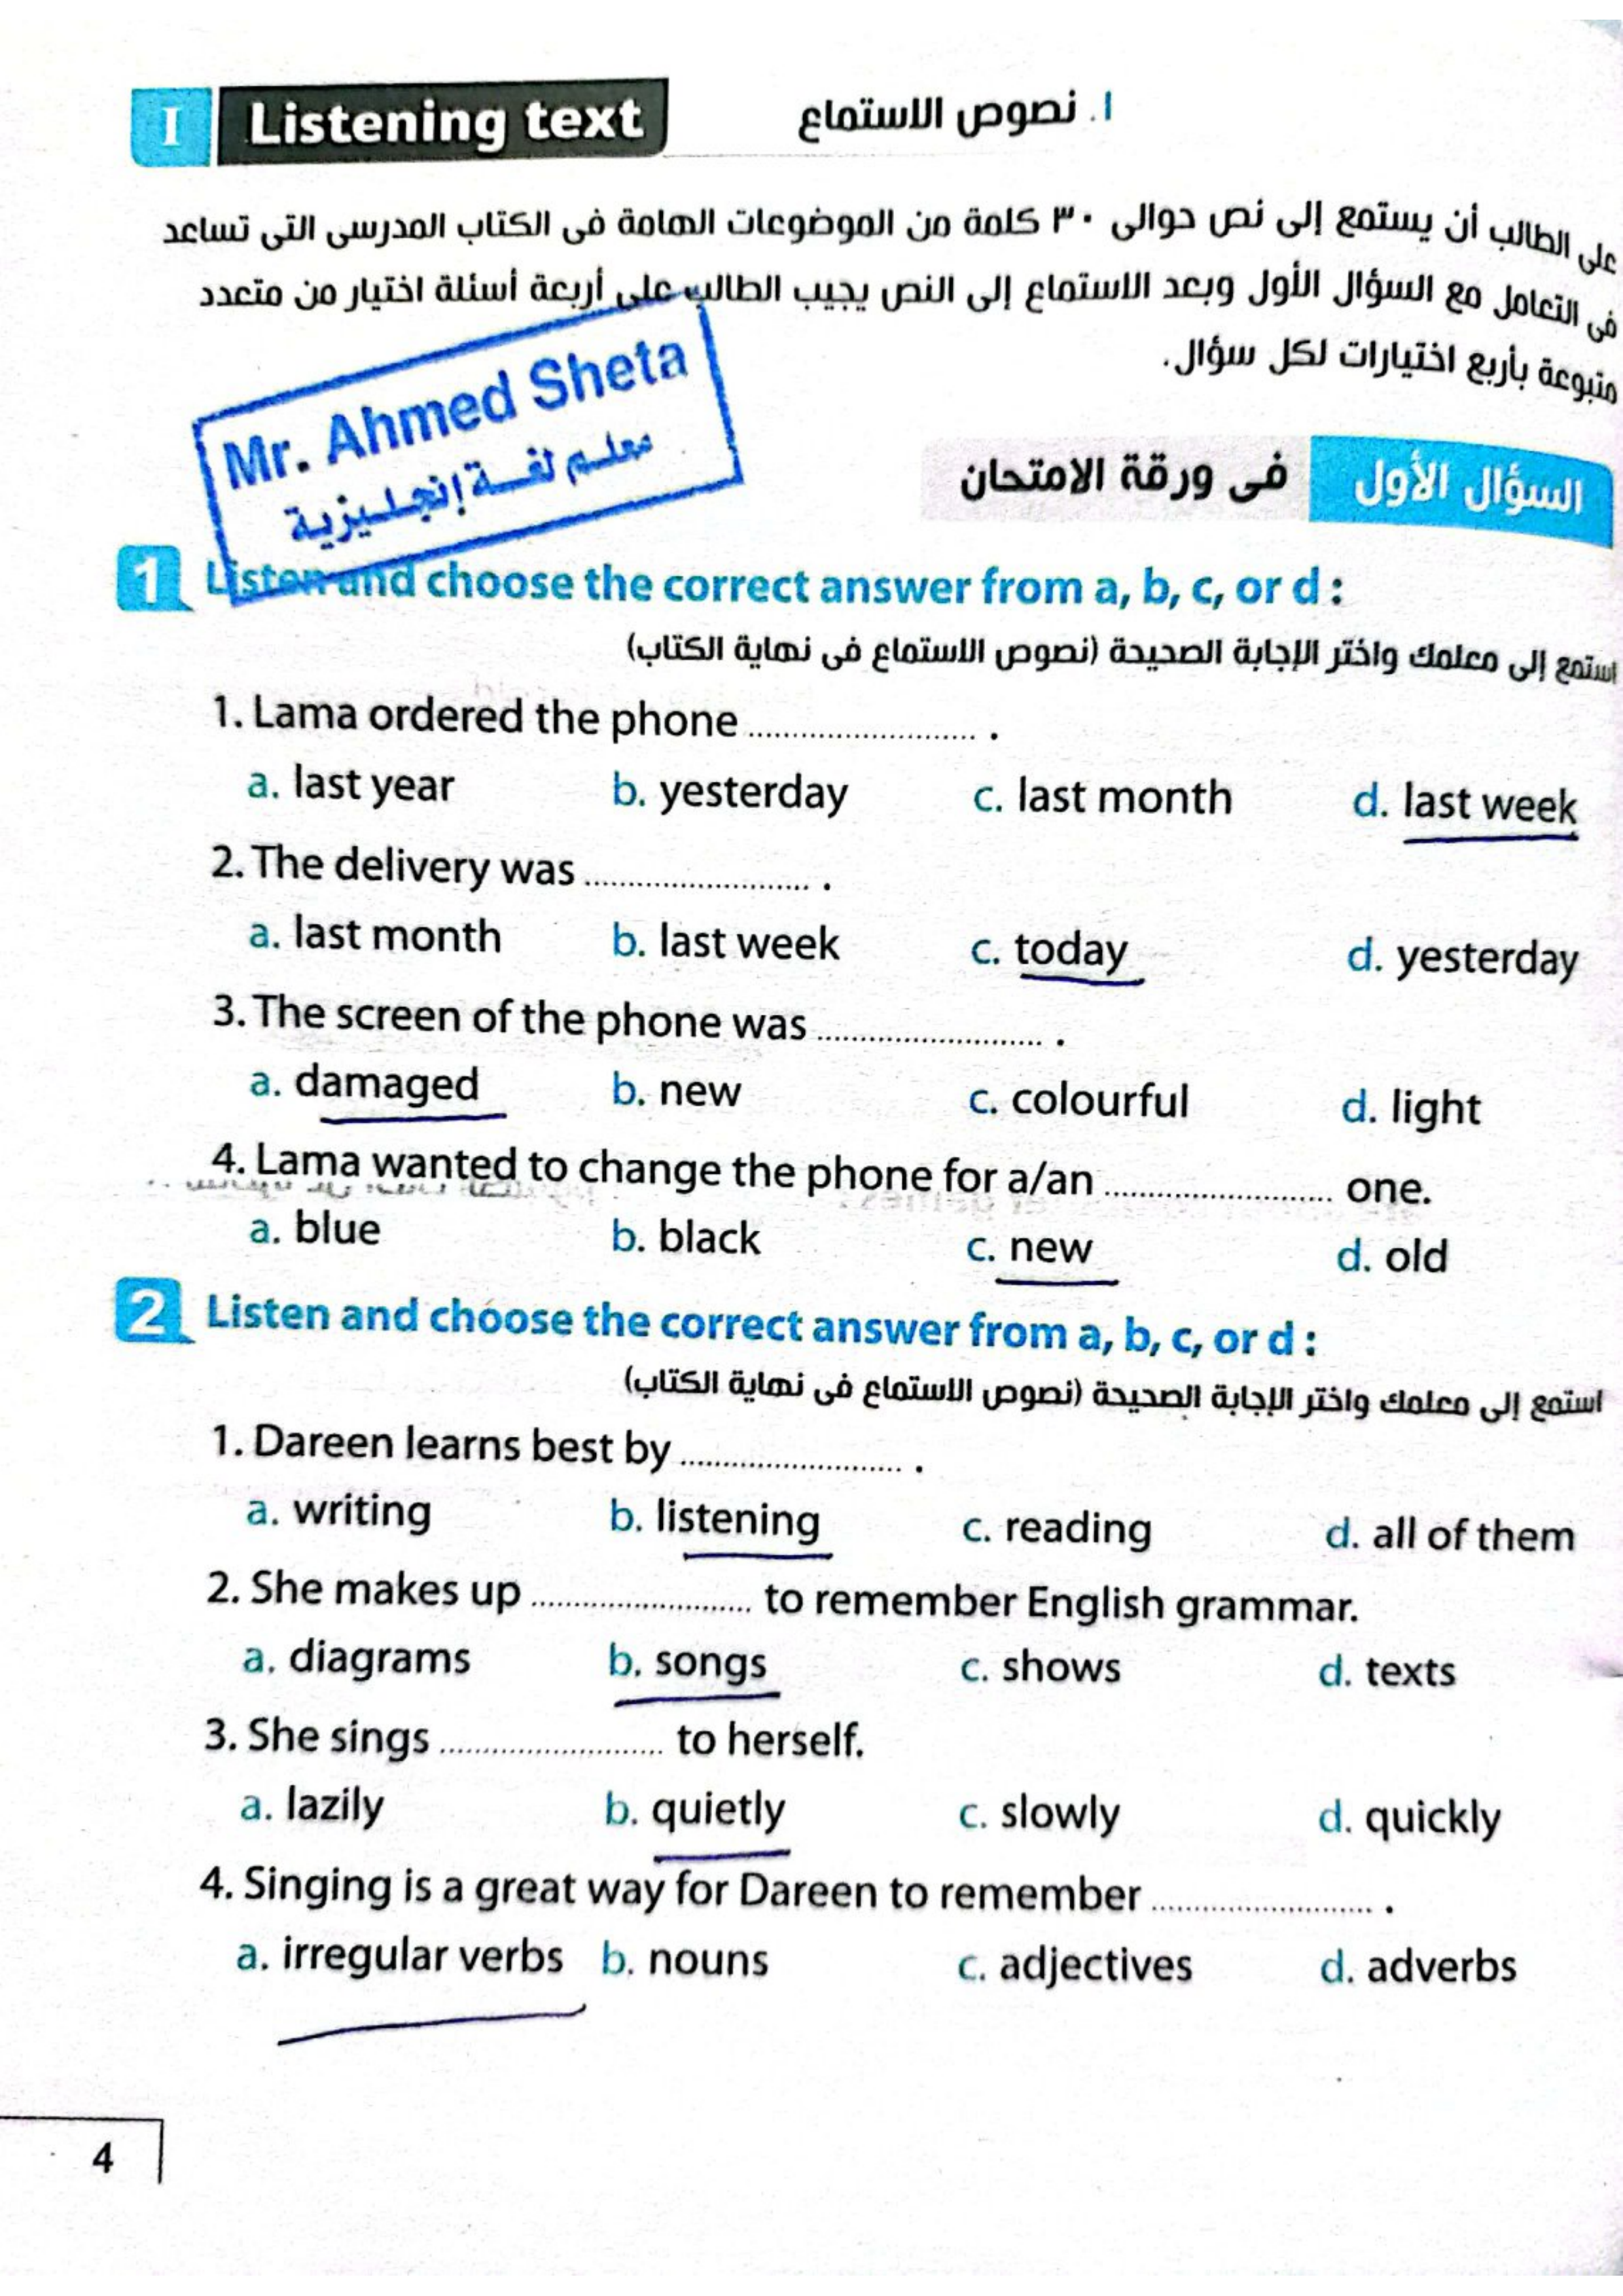 I Listening text
١. نصوص الاستماع
على الطالب أن يستمع إلى نص حوالى ٣٠ كلمة من الموضوعات الهامة فى الكتاب المدرسى التى تساعد
فى التعامل مع السؤال الأول وبعد الاستماع إلى النص يجيب الطالب على أربعة أسئلة اختيار من متعدد
متبوعة بأربع اختيارات لكل سؤال.
Mr. Ahmed Sheta
معلم لغة إنجليزية
السؤال الأول فى ورقة الامتحان
1 Listen and choose the correct answer from a, b, c, or d :
استمع إلى معلمك واختر الإجابة الصحيحة (نصوص الاستماع فى نهاية الكتاب)
1. Lama ordered the phone .......................... .
a. last year b. yesterday c. last month d. last week
2. The delivery was .......................... .
a. last month b. last week c. today d. yesterday
3. The screen of the phone was .......................... .
a. damaged b. new c. colourful d. light
4. Lama wanted to change the phone for a/an .......................... one.
a. blue b. black c. new d. old
2 Listen and choose the correct answer from a, b, c, or d :
استمع إلى معلمك واختر الإجابة الصحيحة (نصوص الاستماع فى نهاية الكتاب)
1. Dareen learns best by .......................... .
a. writing b. listening c. reading d. all of them
2. She makes up .......................... to remember English grammar.
a. diagrams b. songs c. shows d. texts
3. She sings .......................... to herself.
a. lazily b. quietly c. slowly d. quickly
4. Singing is a great way for Dareen to remember .......................... .
a. irregular verbs b. nouns c. adjectives d. adverbs
4